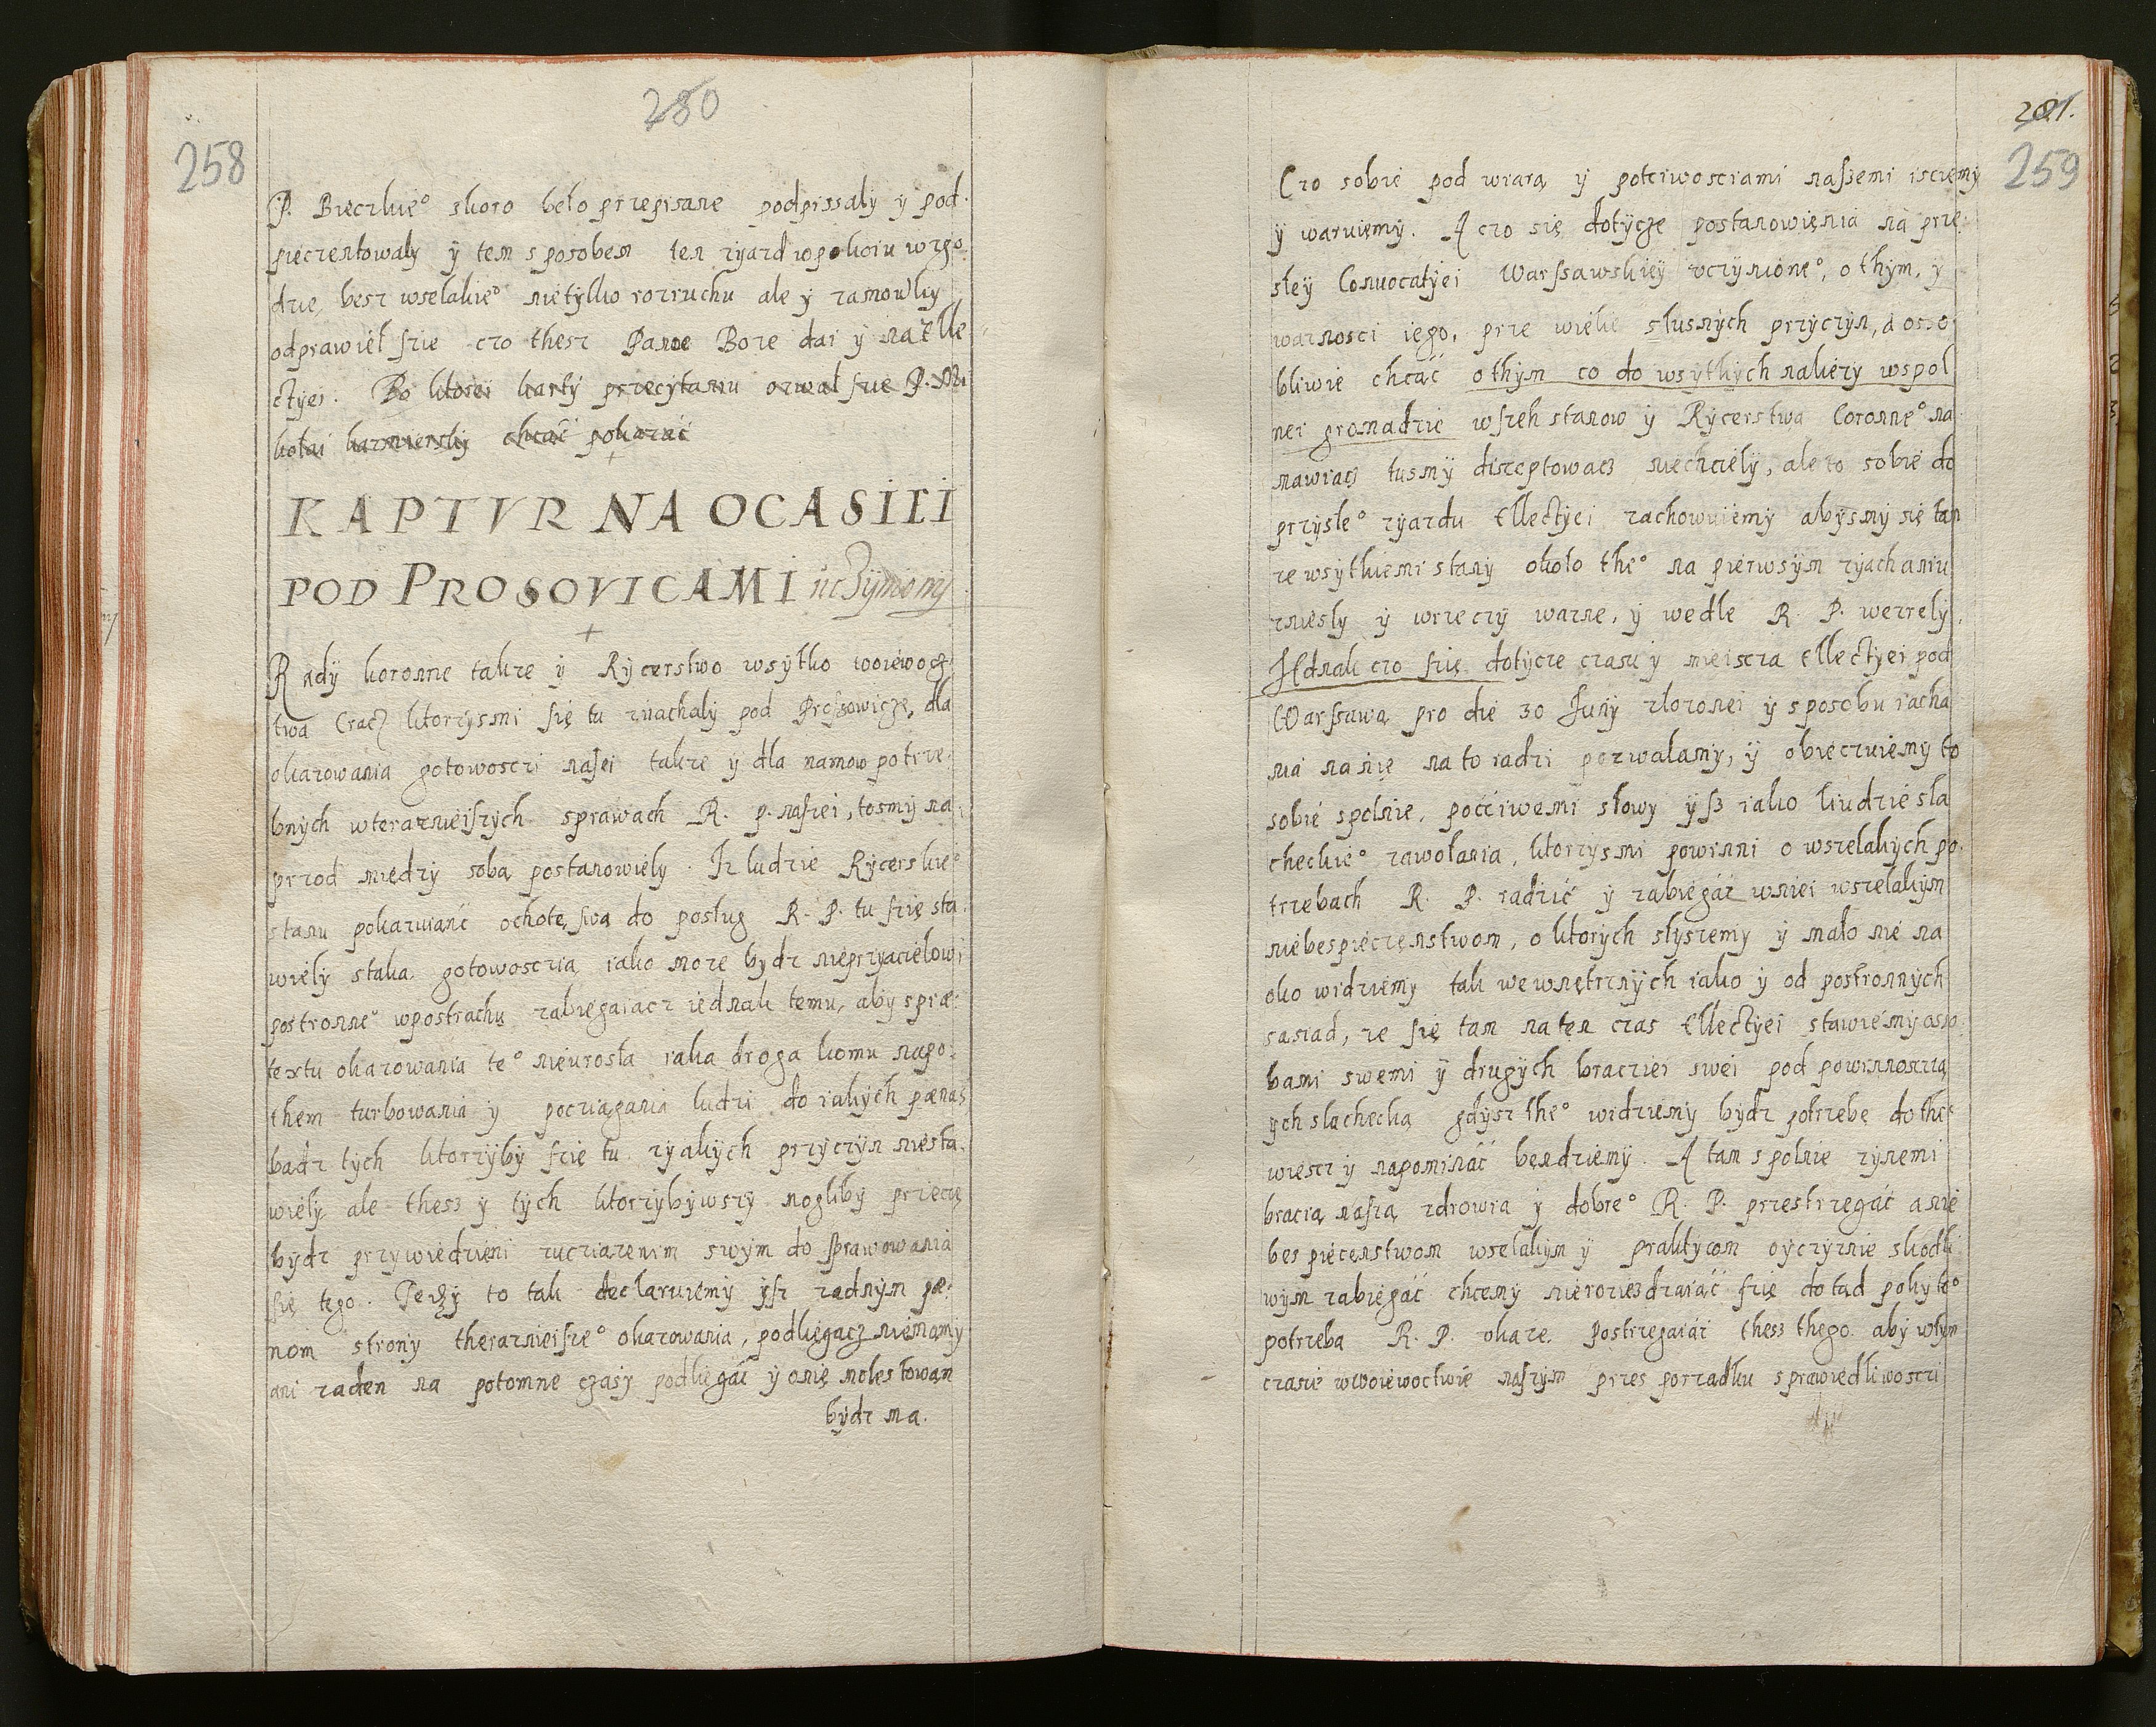 280
258
P. Bieczkie° skoro beło przepisane podpissały ÿ pod.
pieczentowały ÿ tem sposobem ten zyazd wpokoiu wzgo.
dzie, besz wselakie° nietÿlko rozruchu ale ÿ zamowky
odprawieł szie czo thesz Panoe Boze dai ÿ na Elle
ctÿei. Bo ktorei karty przecÿtaniu ozwał szie P. Mi
kołai kazmierskÿ chcać pokazać
KAPTVR NA OCASIEI
POD PROSOVICAMI ucżÿniony
Radÿ koronne takze ÿ Rÿcerstwo wsÿtko woiewocz
twa Cracz ktorzÿsmi się tu ziachalÿ pod Proszowicze, dla
okazowania gotowosczi nasei takze ÿ dla namow potrze.
bnÿch wterazniejszÿch sprawach R. p. naszei, tosmÿ na.
przod miedzÿ sobą postanowiely. Iz ludzie Rÿcerskie°
stanu pokazuiańć ochotę, swą do posług R. P. tu szię sta.
wiely staką gotowosczią iako moze bydz nieprzyacielowi
postronne° wpostrachu zabiegaiacz iednak temu, aby spræ.
textu okazowania te° nieurosła iaka droga komu napo.
them turbowania ÿ pocziągania ludzi do iakich pænas
badz tÿch ktorzÿbÿ szię tu zÿakÿch przÿczÿn niesta.
wielÿ ale thesz ÿ tÿch ktorzÿbÿwszÿ mogliby przecię
bydz przÿwiedzieni zucziazenim swÿm do sprawowania
się tego. Teczÿ to tak declaruiemÿ ÿsz zadnÿm pæ.
nom strony therazniejsze° okazowania, podliegacz niemamy
ani zaden na potomne czasÿ podliegać ÿ onię molestowan
bydz ma.
281.
259
Czo sobie pod wiarą ÿ potciwoscziami naszemi isciemÿ
ÿ waruiemÿ. A czo się dotÿcze postanowięnia na prze.
słeÿ Conuocatÿei Warszawskieÿ vczÿnione°, o thÿm, ÿ
waznosci iego, prze wielie słusnÿch przÿczÿn, a osso
bliwie chcąć othÿm co do wsÿtkÿch nalezÿ wspol
nei gromadzie wszeh stanow ÿ Rÿcerstwa Coronne° na
mawiacz tusmÿ disceptowacz niechcielÿ, ale to sobie do
przÿsłe° zÿazdu Ellectÿei zachowuiemÿ abÿsmÿ się tam
ze wsÿtkiemi stanÿ około the° na pierwsÿm zÿachaniu
znieslÿ ÿ wrzeczÿ wazne, ÿ wedle R. P. wezrelÿ.
Jednak czo się dotÿcze czasu ÿ mieiscza Ellectÿei pod
Warszawą pro die 30 Junÿ złozonei ÿ sposobu iacha
nia na nię na to radzi pozwalamÿ, ÿ obieczuiemÿ to
sobie spolnie, poćciwemi słowy ÿsz iako liudzie sla
checkie° zawołania, ktorzysmi powinni o wszelakÿch po.
trzebach R. P. radzić ÿ zabiegać wniei wszelakÿm
niebespiecżęnstwom, o ktorÿch słyszemÿ ÿ mało nie na
oko widziemÿ tak wewnętrznÿch iako ÿ od postronnÿch
sasiad, ze się tam na ten czas Ellectÿei stawiemÿ osso.
bami swemi ÿ drugÿch bracziei swei pod powinnosczią
ÿch slachecką gdÿsz the° widziemy bÿdz potrzebę do the°
wiescz ÿ napomináć bendziemÿ. A tam spolnie zÿnemi
bracią naszą zdrowia ÿ dobre° R. P. przestrzegáć a nie
bespieczenstwom wselakÿm ÿ praktÿcom oÿczÿznie skodli
wÿm zabiegáć chcemÿ nierozieszdzaiáć szię dotąd pokÿ te°
potrzeba R. P. okaze. Postrzegaiać thesz thego abÿ wtÿm
czasie wwoiewoctwie naszÿm przes porzadku sprawiedliwosczi